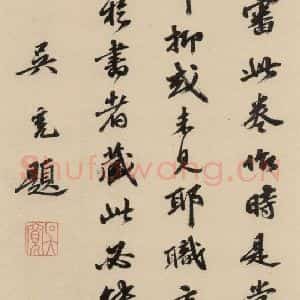 審此卷似時是
抑或未見耶職
書者藏此必
吳寬題
Shufawang.cn